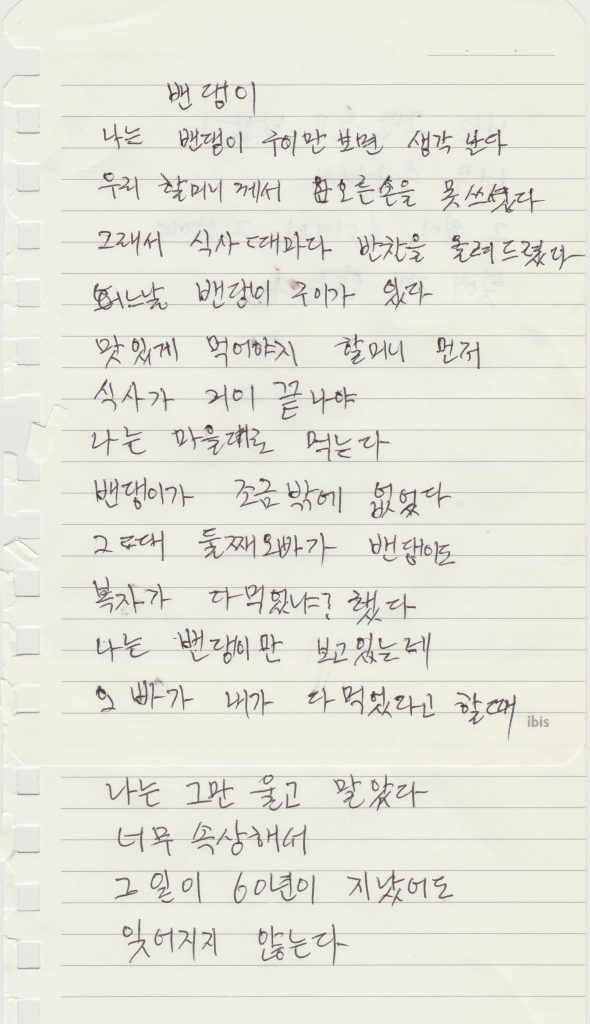 밴댕이
나는 밴댕이 구이만 보면 생각 난다
우리 할머니 께서 오른손을 못쓰셨다
그래서 식사 때마다 반찬을 올려 드렸다
어느날 밴댕이 구이가 있다
맛있게 먹어야지 할머니 먼저
식사가 거이 끝나야
나는 마음대로 먹는다
밴댕이가 조금밖에 없었다
그때 둘째오빠가 밴댕이도
복자가 다 먹었냐? 했다
나는 밴댕이만 보고있는데
오빠가 내가 다 먹었다고 할때
ibis
나는 그만 울고 말았다
너무 속상해서
그 일이 60년이 지났어도
잊어지지 않는다